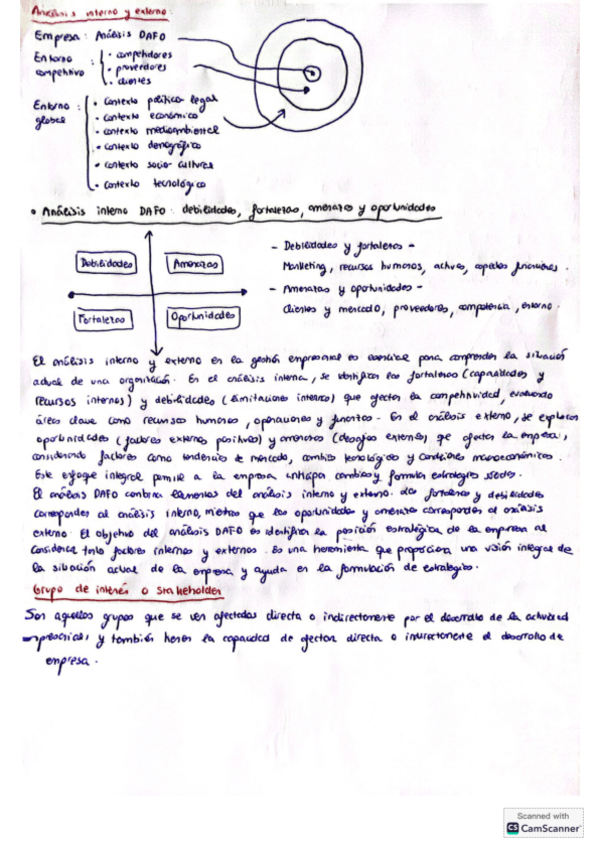 Análisis interno y externo:
Empresa: Análisis DAFO
Entorno competitivo : · competidores
· proveedores
· clientes
Entorno global : · Contexto político legal
· Contexto económico
· contexto medioambiental
· Contexto demográfico
· Contexto socio cultural
· Contexto tecnológico
• Análisis interno DAFO: debilidades, fortalezas, amenazas y oportunidades
Debilidades
Amenazas
Fortalezas
Oportunidades
- Debilidades y fortalezas -
Marketing, recursos humanos, activos, aspectos financieros.
- Amenazas y oportunidades -
Clientes y mercado, proveedores, competencia, entorno.
El análisis interno y externo en la gestión empresarial es esencial para comprender la situación
actual de una organización. En el análisis interno, se identifican las fortalezas (capacidades y
recursos internos) y debilidades (limitaciones internas) que afectan la competitividad, evaluando
áreas clave como recursos humanos, operaciones y finanzas. En el análisis externo, se exploran
oportunidades (factores externos positivos) y amenazas (desafíos externos) que afectan la empresa,
considerando factores como tendencias de mercado, cambios tecnológicos y condiciones macroeconómicas.
Este enfoque integral permite a la empresa anticipar cambios y formular estrategias sólidas.
El análisis DAFO combina elementos del análisis interno y externo. Las fortalezas y debilidades
corresponden al análisis interno, mientras que las oportunidades y amenazas corresponden al análisis
externo. El objetivo del análisis DAFO es identificar la posición estratégica de la empresa al
considerar tanto factores internos y externos. Es una herramienta que proporciona una visión integral de
la situación actual de la empresa y ayuda en la formulación de estrategias.
Grupo de interés o stakeholder
Son aquellos grupos que se ven afectados directa o indirectamente por el desarrollo de la actividad
empresarial y también tienen la capacidad de afectar directa o indirectamente el desarrollo de
empresa.
Scanned with
CS CamScanner